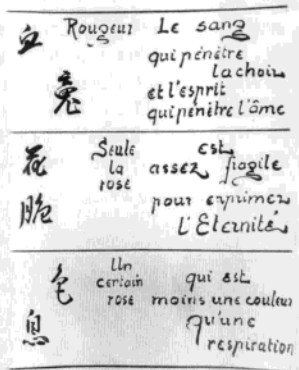 血
Rougeur
Le sang
qui pénètre
la chair
et l'esprit
qui pénètre l'âme
花
脆
Seule
la
rose
est
assez fragile
pour exprimer
l'Eternité
色
息
Un
certain
rose
qui est
moins une couleur
qu'une
respiration